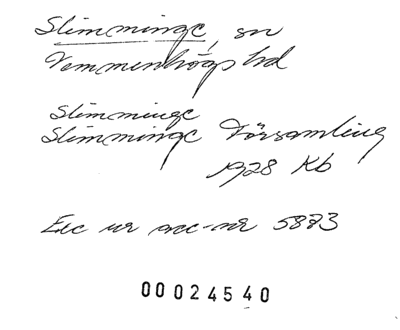 Slimminge, sn
Vemmenhögs hd
Slimminge
Slimminge Församling
1928 Kb
Exc ur acc-nr 5883
00024540